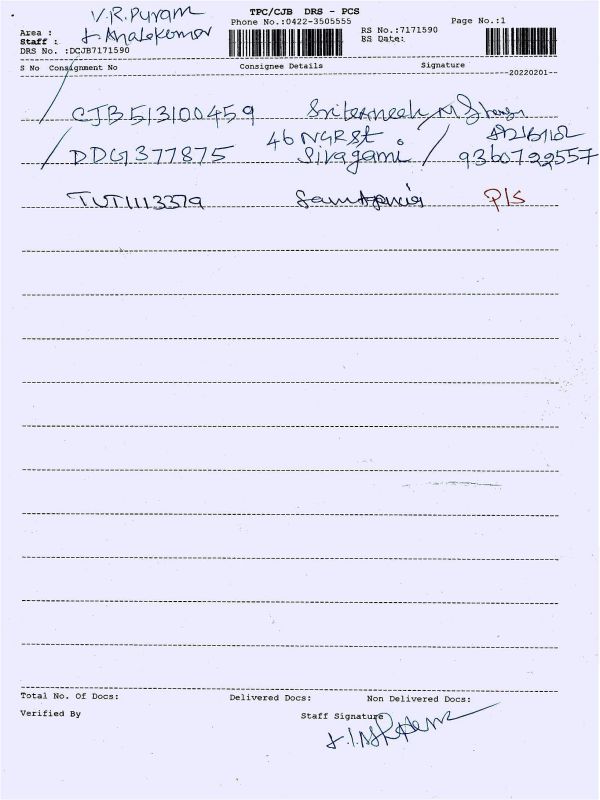 V.R. Puram
TPC/CJB DRS - PCS
Page No.:1
Area :
Phone No.:0422-3505555
RS No.:7171590
Staff :
BS Date:
DRS No. :DCJB7171590
S No Consignment No Consignee Details Signature
20220201
CJB513100459
46 NGR St
DDG1377875 Sivagami / 9360722557
TUT1113379 P/S
Total No. Of Docs: Delivered Docs: Non Delivered Docs:
Verified By Staff Signature